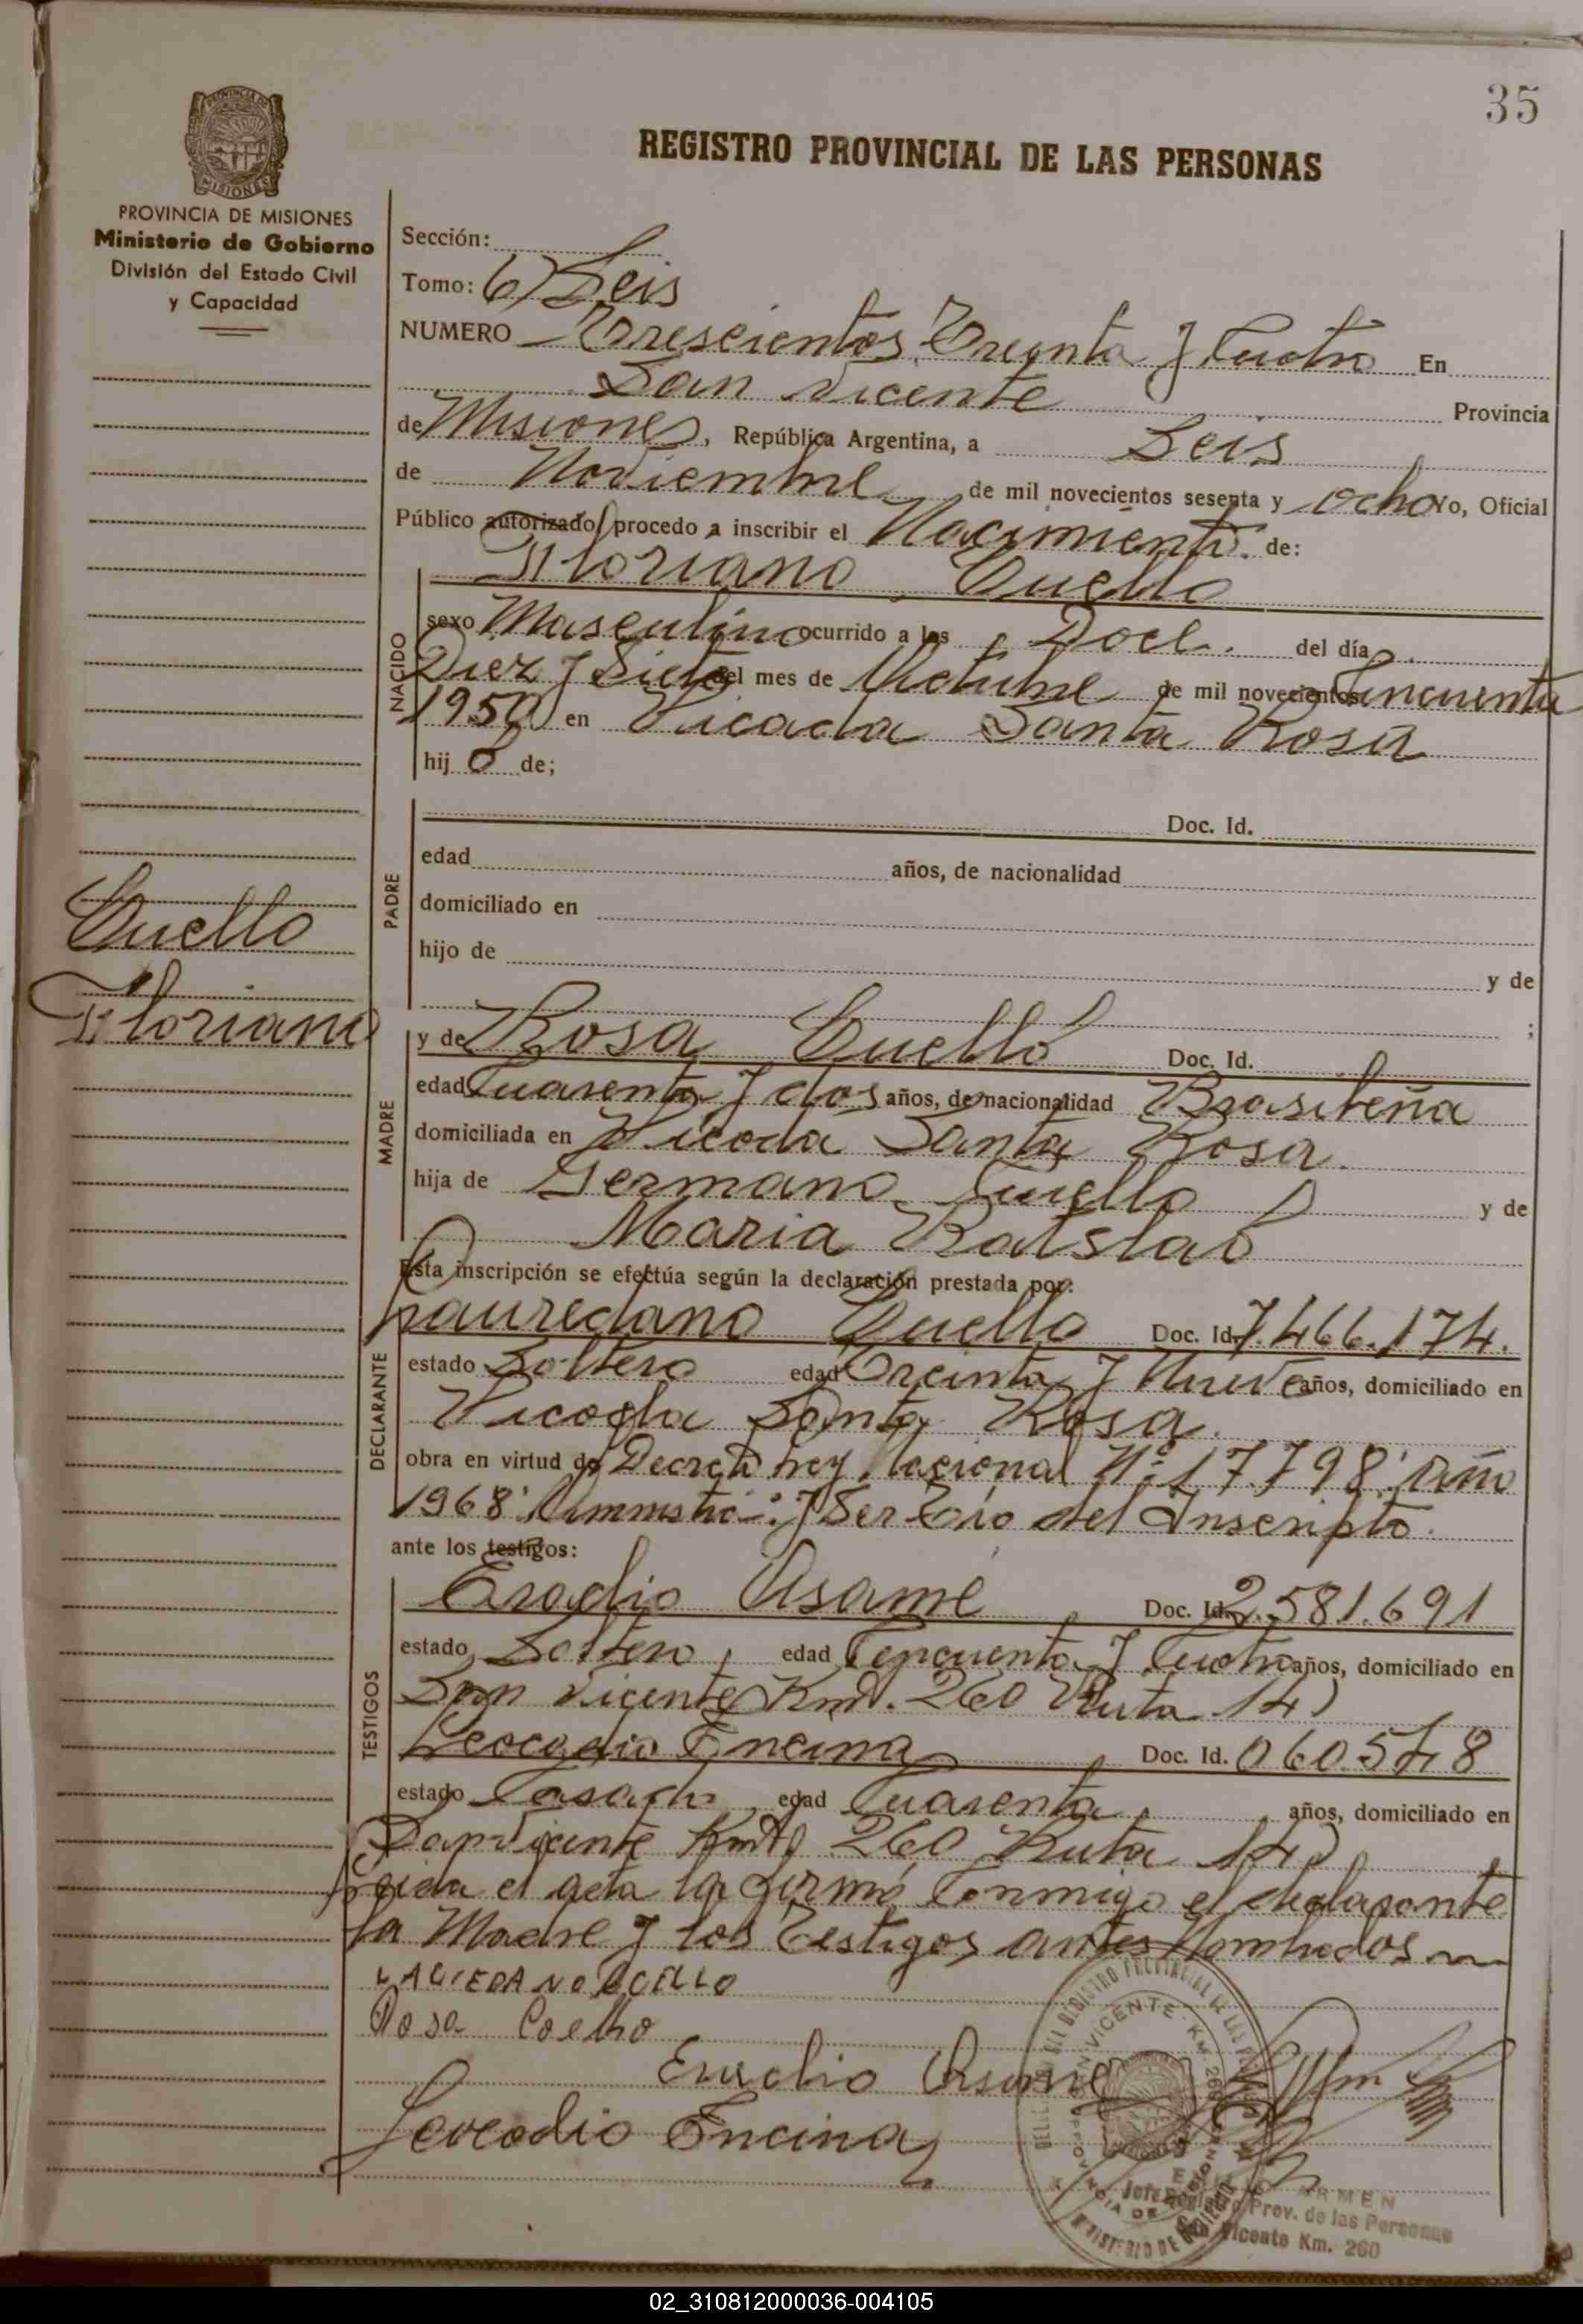 35
REGISTRO PROVINCIAL DE LAS PERSONAS
PROVINCIA DE MISIONES
Ministerio de Gobierno
División del Estado Civil
y Capacidad
Sección:
Tomo: 6) Seis
NUMERO Trescientos Treinta y Cuatro En
San Vicente Provincia
de Misiones, República Argentina, a Seis
de Noviembre de mil novecientos sesenta y ocho Yo, Oficial
Público autorizado, procedo a inscribir el Nacimiento de:
Floriano Cuello
NACIDO
sexo Masculino ocurrido a las Doce del día
Diez y Siete del mes de Octubre de mil novecientos Cincuenta
1950 en Picada Santa Rosa
hij o de;
PADRE
Doc. Id.
edad años, de nacionalidad
domiciliado en
hijo de y de
;
Cuello
Floriano
MADRE
y de Rosa Cuello Doc. Id.
edad Cuarenta y dos años, de nacionalidad Brasileña
domiciliada en Picada Santa Rosa
hija de Germano Cuello y de
Maria
Esta inscripción se efectúa según la declaración prestada por:
DECLARANTE
Lauredano Cuello Doc. Id. 7.466.174.
estado Soltero edad Treinta y Nueve años, domiciliado en
Picada Santa Rosa.
obra en virtud de Decreto Ley Nacional Nº 17.798 Año
1968 y Ser Tio del Inscripto.
ante los testigos:
TESTIGOS
Asame Doc. Id. 2.581.691
estado Soltero, edad Cincuenta y Cuatro años, domiciliado en
San Vicente Km. 260 Ruta 14)
Leocadio Encina Doc. Id.
estado Casado edad Cuarenta, años, domiciliado en
San Vicente Km 260 Ruta 14)
el acta la firmó Conmigo el declarante
la Madre y los Testigos antes Nombrados
Rosa Coelho
Asame
Leocadio Encina
SAN VICENTE - KM 260
PROVINCIA DE MISIONES
Jefe Registro Prov. de las Personas
San Vicente Km. 260
02_310812000036-004105